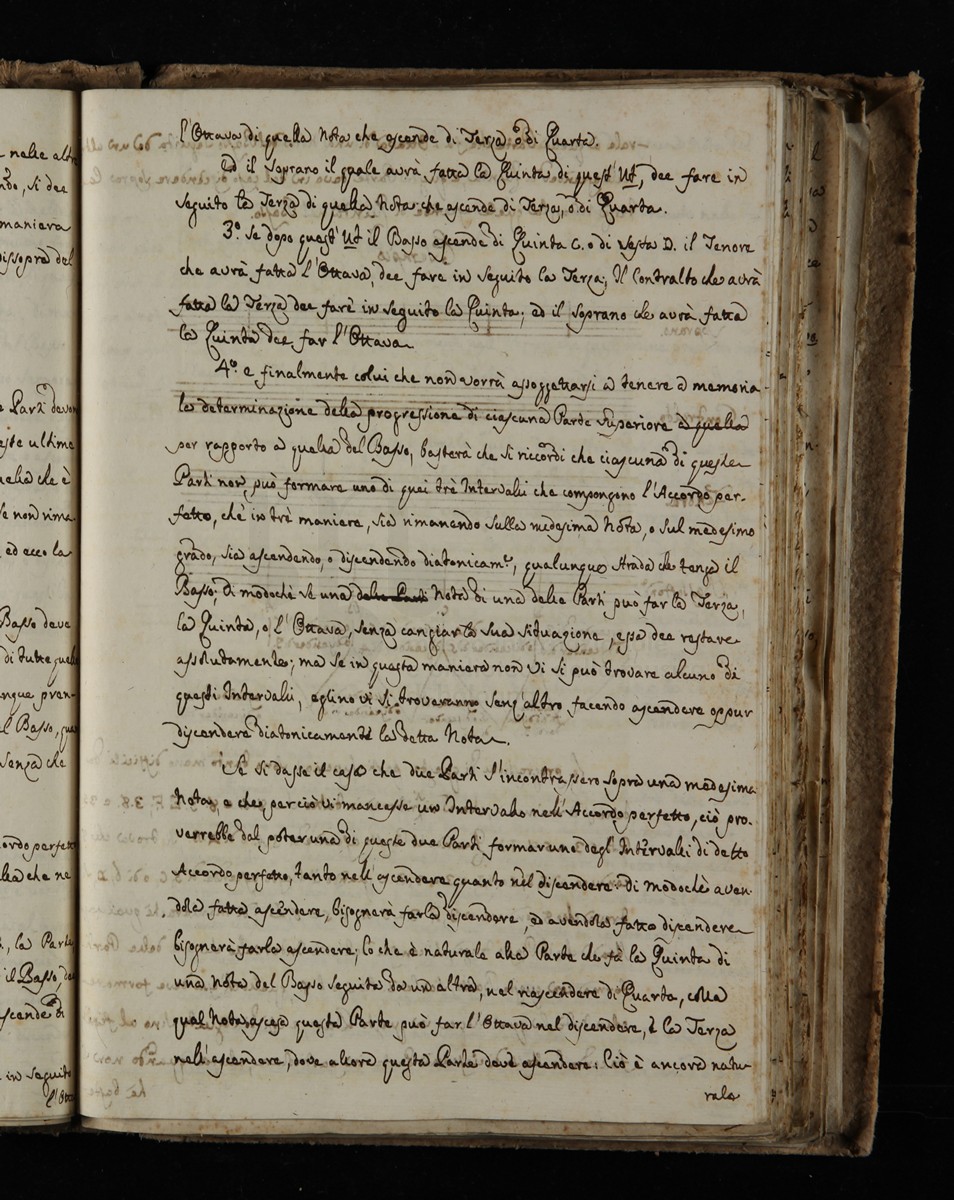 l'Ottava di quella Nota che ascende di Terza, o di Quarta.
Ed il Soprano il quale avrà fatta la Quinta di quest' Ut, dee fare in
seguito la Terza di quella Nota che ascende di Terza, o di Quarta.
3.º Se dopo quest' Ut il Basso ascende di Quinta C. o di Sesta D. il Tenore
che avrà fatta l'Ottava, dee fare in seguito la Terza; Il Contralto che avrà
fatta la Terza dee fare in seguito la Quinta; ed il Soprano che avrà fatta
la Quinta dee far l'Ottava.
4.º e finalmente colui che non vorrà assoggettarsi a tenere a memoria
la determinazione della progressione di ciascuna Parte Superiore a quella
per rapporto a quella del Basso, basterà che si riccordi che ciascuna di queste
Parti non può formare uno di quei trè Intervalli che compongono l'Accordo per-
fetto, che in trè maniere, sia rimanendo sulla medesima Nota, o sul medesimo
grado, sia ascendendo, o discendendo diatonicam.e, qualunque strada che tenga il
Basso; Di modochè se una delle Parti Nota di una delle Parti può far la Terza,
la Quinta, o l'Ottava, senza cangiar la sua situazione, essa dee restare
assolutamente; ma se in questa maniera non vi si può trovare alcuno di
questi Intervalli, eglino vi si troveranno senz'altro facendo ascendere oppur
discendere diatonicamente la detta Nota.
Se si dasse il caso che due Parti s'incontrassero sopra una medesima
Nota, e che perciò vi mancasse un Intervallo nell'Accordo perfetto, ciò pro-
verrebbe dal poter una di queste due Parti formar uno degl' Intervalli di detto
Accordo perfetto, tanto nell'ascendere quanto nel discendere: di modochè aven-
dola fatta ascendere, bisognerà farla discendere, ed avendola fatta discendere
bisognerà farla ascendere; lo che è naturale alla Parte che fà la Quinta di
una Nota del Basso seguita da un altra, nel riascendere di Quarta, colla
qual Nota ascesa questa Parte può far l'Ottava nel discendere, è la Terza
nell'ascendere, dove allora questa Parte deve ascendere: Ciò è ancora natu-
rale